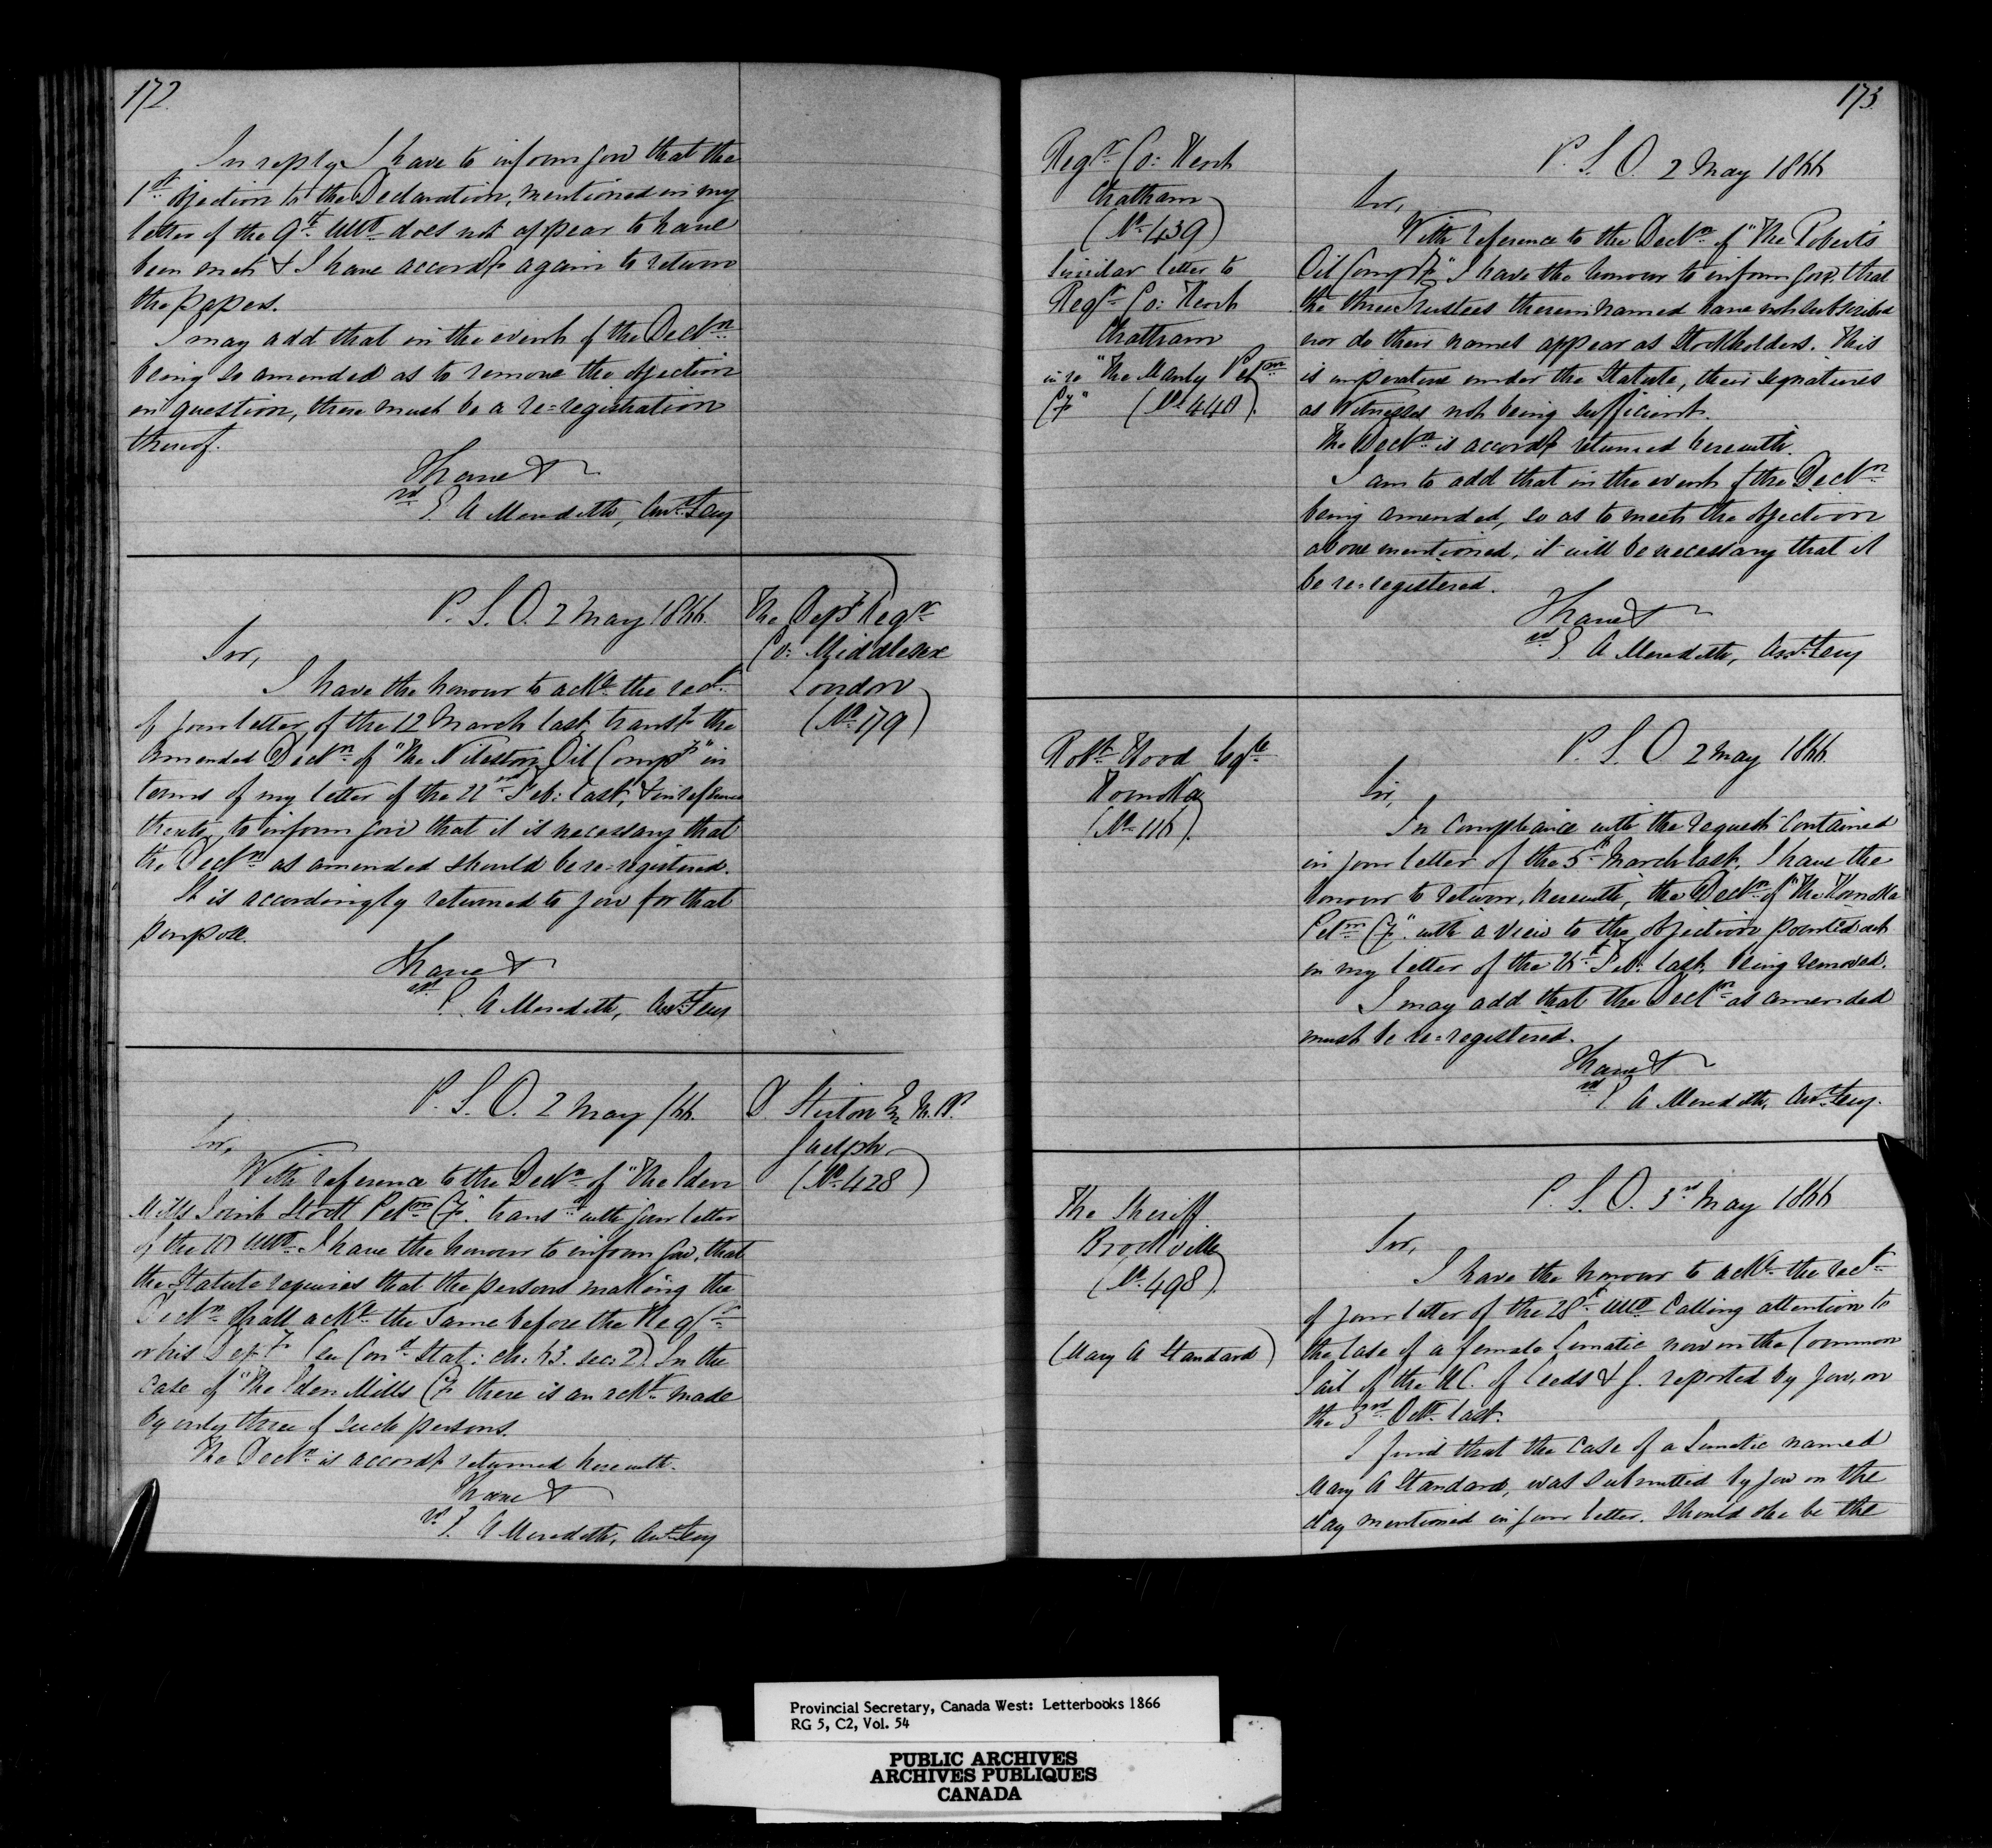 172
In reply, I have to inform you that the
1st objection to the Declaration, mentioned in my
letter of the 9th ulto does not appear to have
been met & I have accordy again to return
the papers.
I may add that in the event of the Decln
being so amended as to remove the objection
in question, there must be a re=registration
thereof.
I have &
sd E. A Meredith, Asst Secy
P. S. O. 2 May 1866.
The Depy Regr
Co: Middlesex
London
(No 179)
Sir,
I have the honour to ackn the rect
of your letter, of the 12 March last, transg the
amended Decln of "The Nilestown Oil Compy" in
terms of my letter of the 22nd Feb: last, & in reference
thereto, to inform you that it is necessary that
the Decln as amended should be re-registered.
It is accordingly returned to you for that
purpose.
I have &
sd E. A Meredith, Asst Secy
P. S. O. 2 May /66.
D Stirton Eq M. P.
Guelph
(No 428)
Sir,
With reference to the Decln of "The Eden
Mills Joint Stock Petm Cy" transd with your letter
of the 10 ulto I have the honour to inform you, that
the Statute requires that the persons making the
Decln shall ackn the same before the Regr
or his Depy (See Cond Stat: ch: 63. sec: 2) In the
case of "The Eden Mills Cy there is an ackt made
by only three of such persons.
The Decln is accordy returned herewith.
I have &
sd E. A Meredith, Asst Secy
173
Regr Co: Kent
Chatham
(No 439)
Similar letter to
Regr Co: Kent
Chatham
in re "The Manly Petm
Cy" (No 440).
P. S. O. 2 May 1866
Sir,
With reference to the Decln of "The Roberts
Oil Compy," I have the honour to inform you, that
the three Trustees therein named have not subscribed
nor do their names appear as Stockholders. This
is imperative under the Statute, their signatures
as Witnesses not being sufficient.
The Decln is accordy returned herewith.
I am to add that in the event of the Decln
being amended, so as to meet the objection
above mentioned, it will be necessary that it
be re=registered.
I have &
sd E. A Meredith, Asst Secy
Robt Wood Esqre
Komoka
(No 116).
P. S. O 2 May 1866.
Sir,
In compliance with the request contained
in your letter of the 5th March last, I have the
honour to return, herewith, the Decln of "The Komoka
Petm Cy" with a view to the objection pointed out
in my letter of the 26th Feb: last, being removed.
I may add that the Decln as amended
must be re=registered.
I have &
sd E. A Meredith, Asst Secy.
The Sheriff
Brockville
(No 498).
(Mary A Standard)
P. S. O. 3rd May 1866
Sir,
I have the honour to ackn the rect
of your letter of the 28th ulto calling attention to
the case of a female Lunatic now in the Common
Gail of the U.C. of Leeds & G. reported by you, on
the 3rd Octr last.
I find that the case of a Lunatic named
Mary A Standard, was submitted by you on the
day mentioned in your letter. Should she be the
Provincial Secretary, Canada West: Letterbooks 1866
RG 5, C2, Vol. 54
PUBLIC ARCHIVES
ARCHIVES PUBLIQUES
CANADA